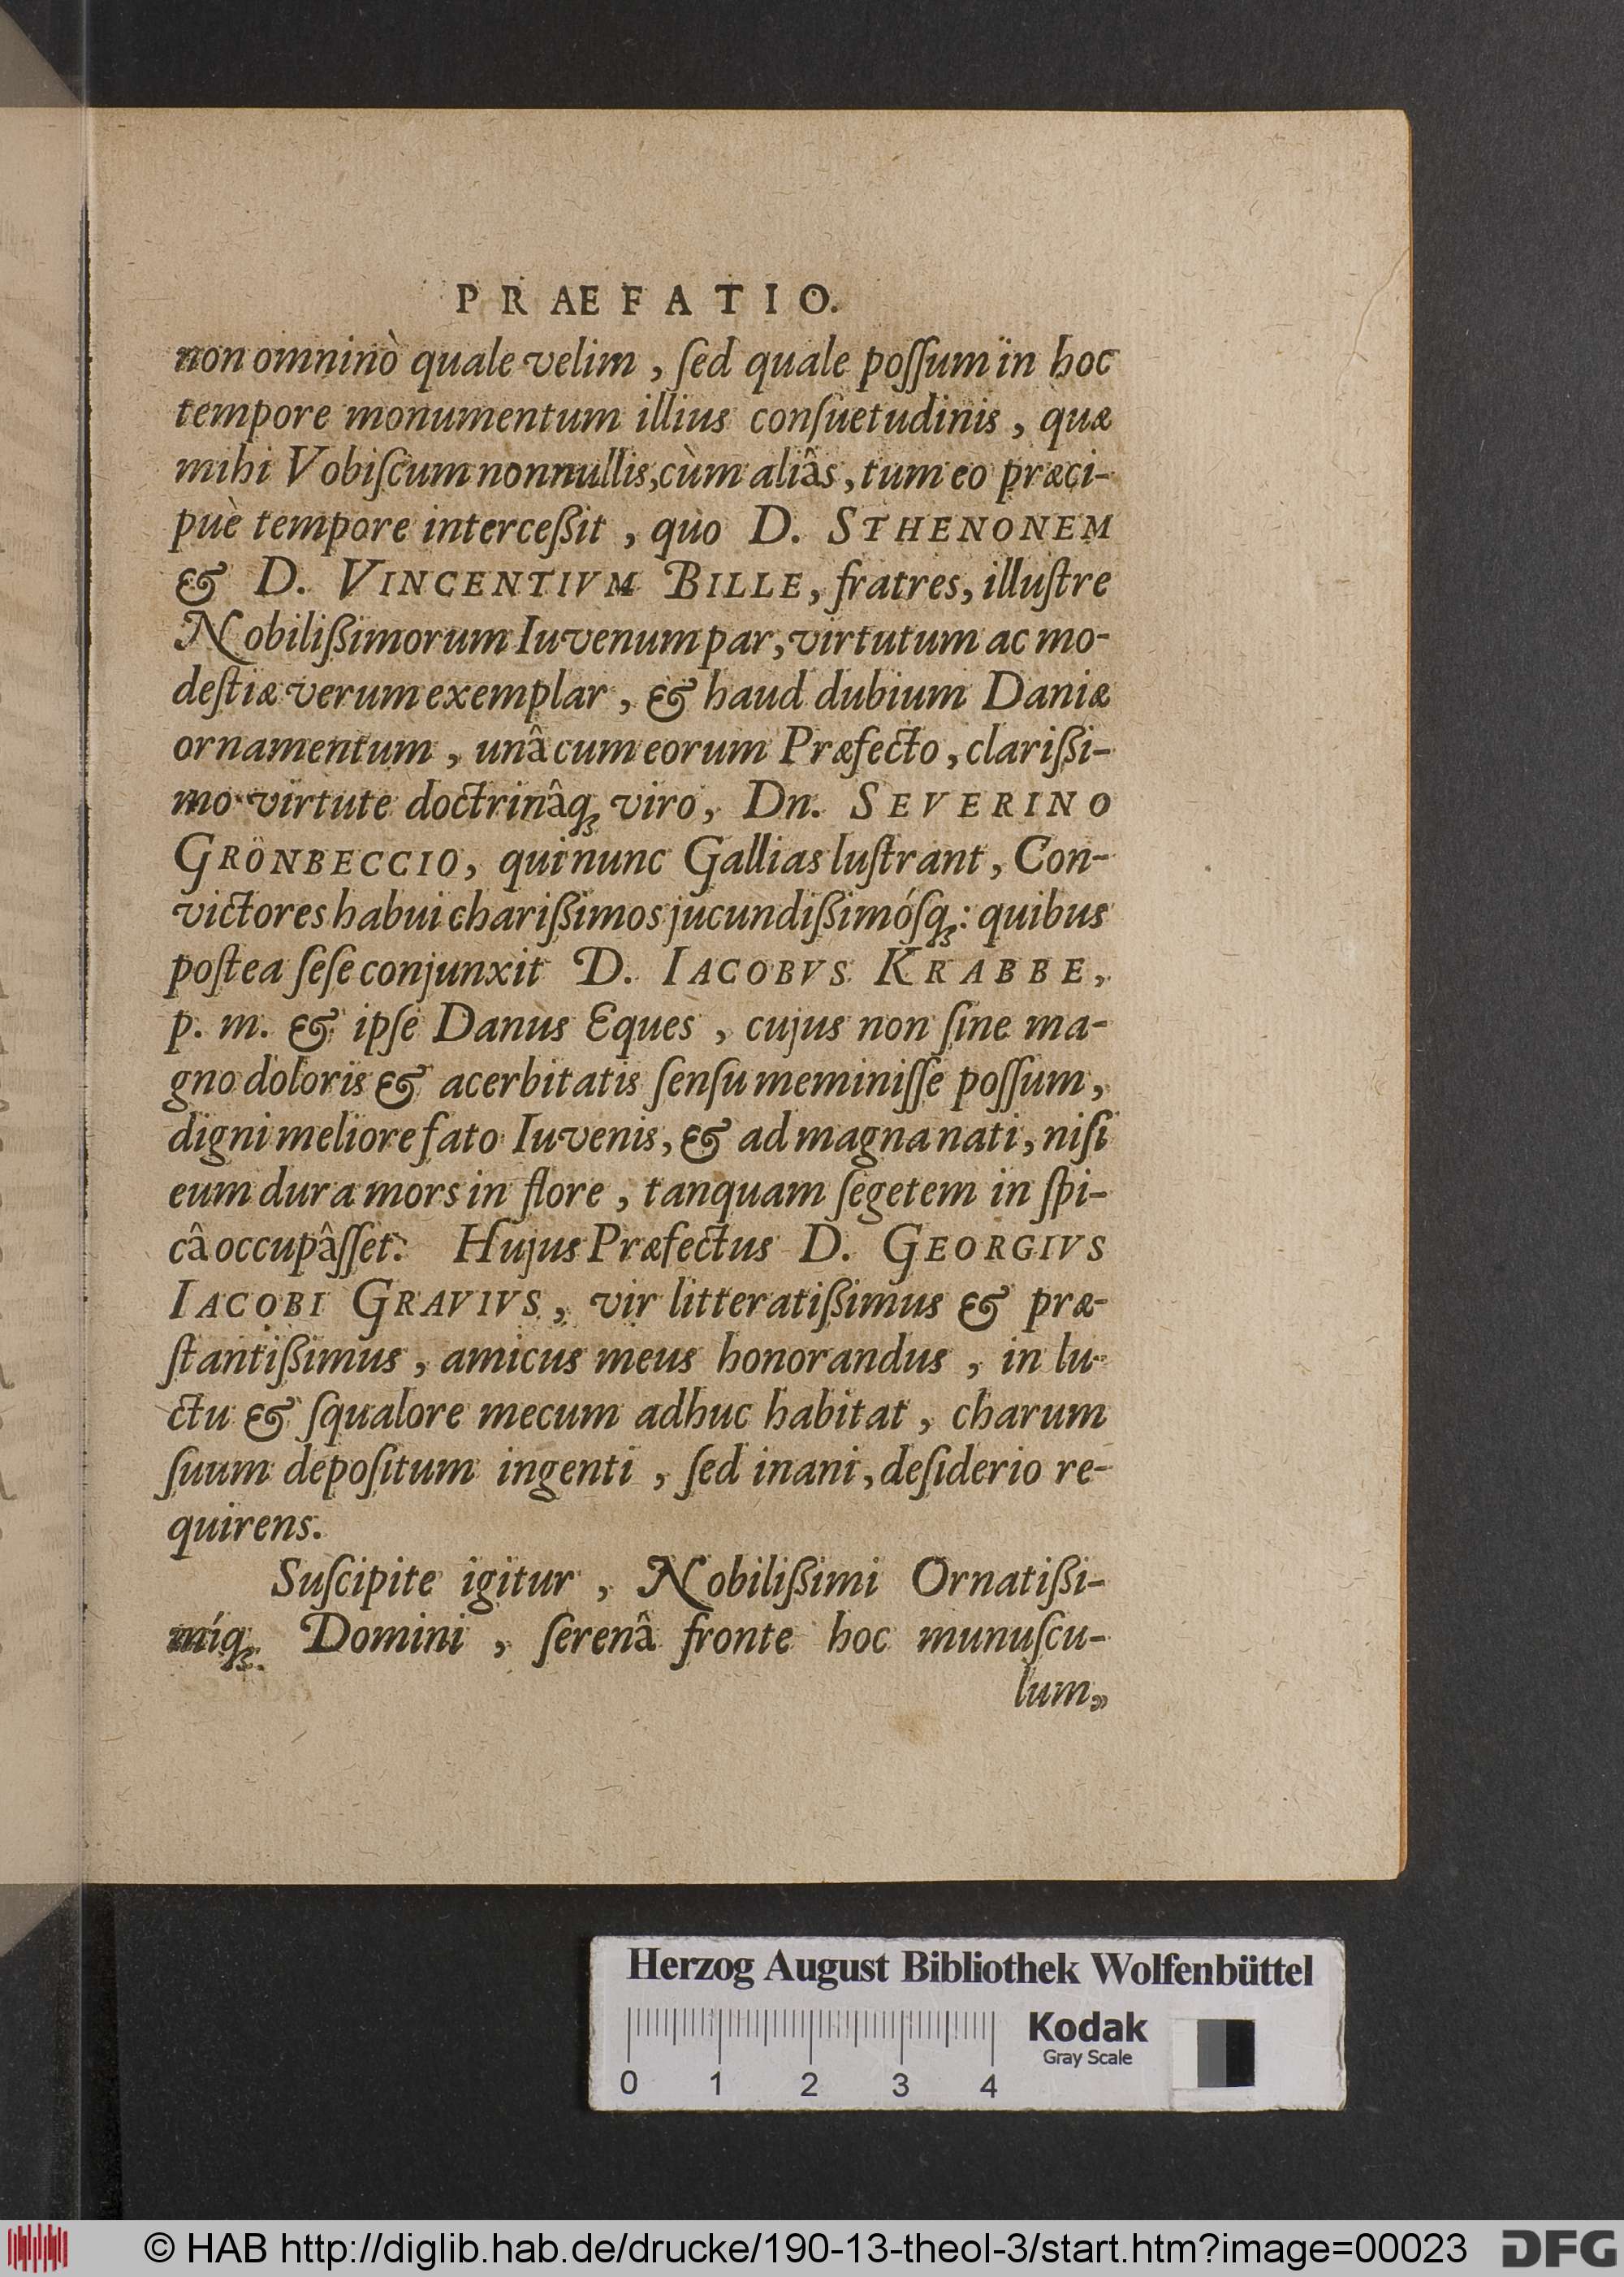 PRAEFATIO.
non omninò quale velim, ſed quale poſſum in hoc
tempore monumentum illius conſuetudinis, quæ
mihi Vobiſcum nonnullis, cùm aliâs, tum eo præci-
puè tempore interceßit, quo D. STHENONEM
& D. VINCENTIVM BILLE, fratres, illuſtre
Nobilißimorum Iuvenum par, virtutum ac mo-
deſtiæ verum exemplar, & haud dubium Daniæ
ornamentum, unâ cum eorum Præfecto, clarißi-
mo virtute doctrinâq; viro, Dn. SEVERINO
GRÖNBECCIO, qui nunc Gallias luſtrant, Con-
victores habui charißimos jucundißimóſq;: quibus
poſtea ſeſe conjunxit D. IACOBVS KRABBE,
p. m. & ipſe Danus Eques, cujus non ſine ma-
gno doloris & acerbitatis ſenſu meminiſſe poſſum,
digni meliore fato Iuvenis, & ad magna nati, niſi
eum dura mors in flore, tanquam ſegetem in ſpi-
câ occupâſſet. Hujus Præfectus D. GEORGIVS
IACOBI GRAVIVS, vir litteratißimus & præ-
ſtantißimus, amicus meus honorandus, in lu-
ctu & ſqualore mecum adhuc habitat, charum
ſuum depoſitum ingenti, ſed inani, deſiderio re-
quirens.
Suſcipite igitur, Nobilißimi Ornatißi-
míq; Domini, ſerenâ fronte hoc munuſcu-
lum,
Herzog August Bibliothek Wolfenbüttel
Kodak
Gray Scale
0 1 2 3 4
© HAB http://diglib.hab.de/drucke/190-13-theol-3/start.htm?image=00023
DFG